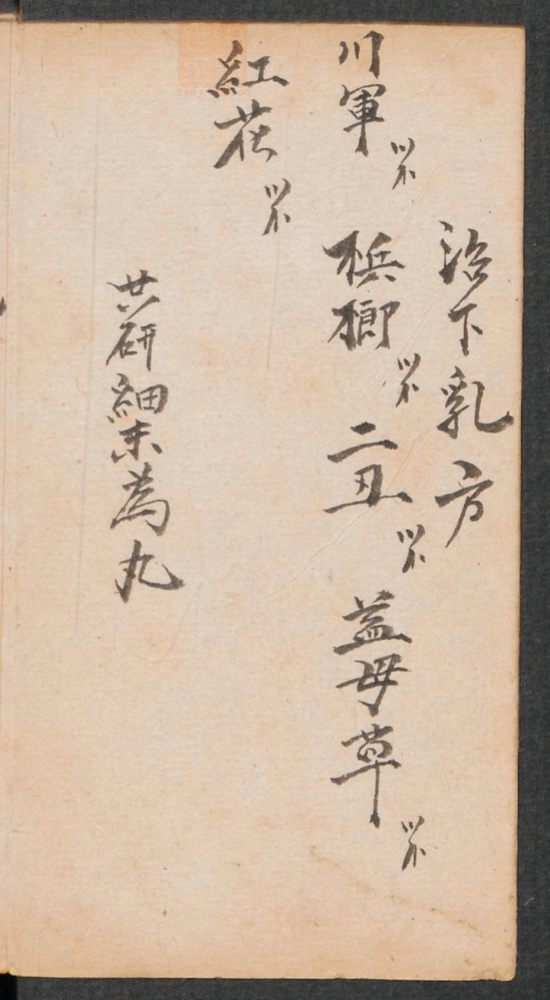 治下乳方
川軍 梹榔 二丑 益母草
紅花
共研細末為丸